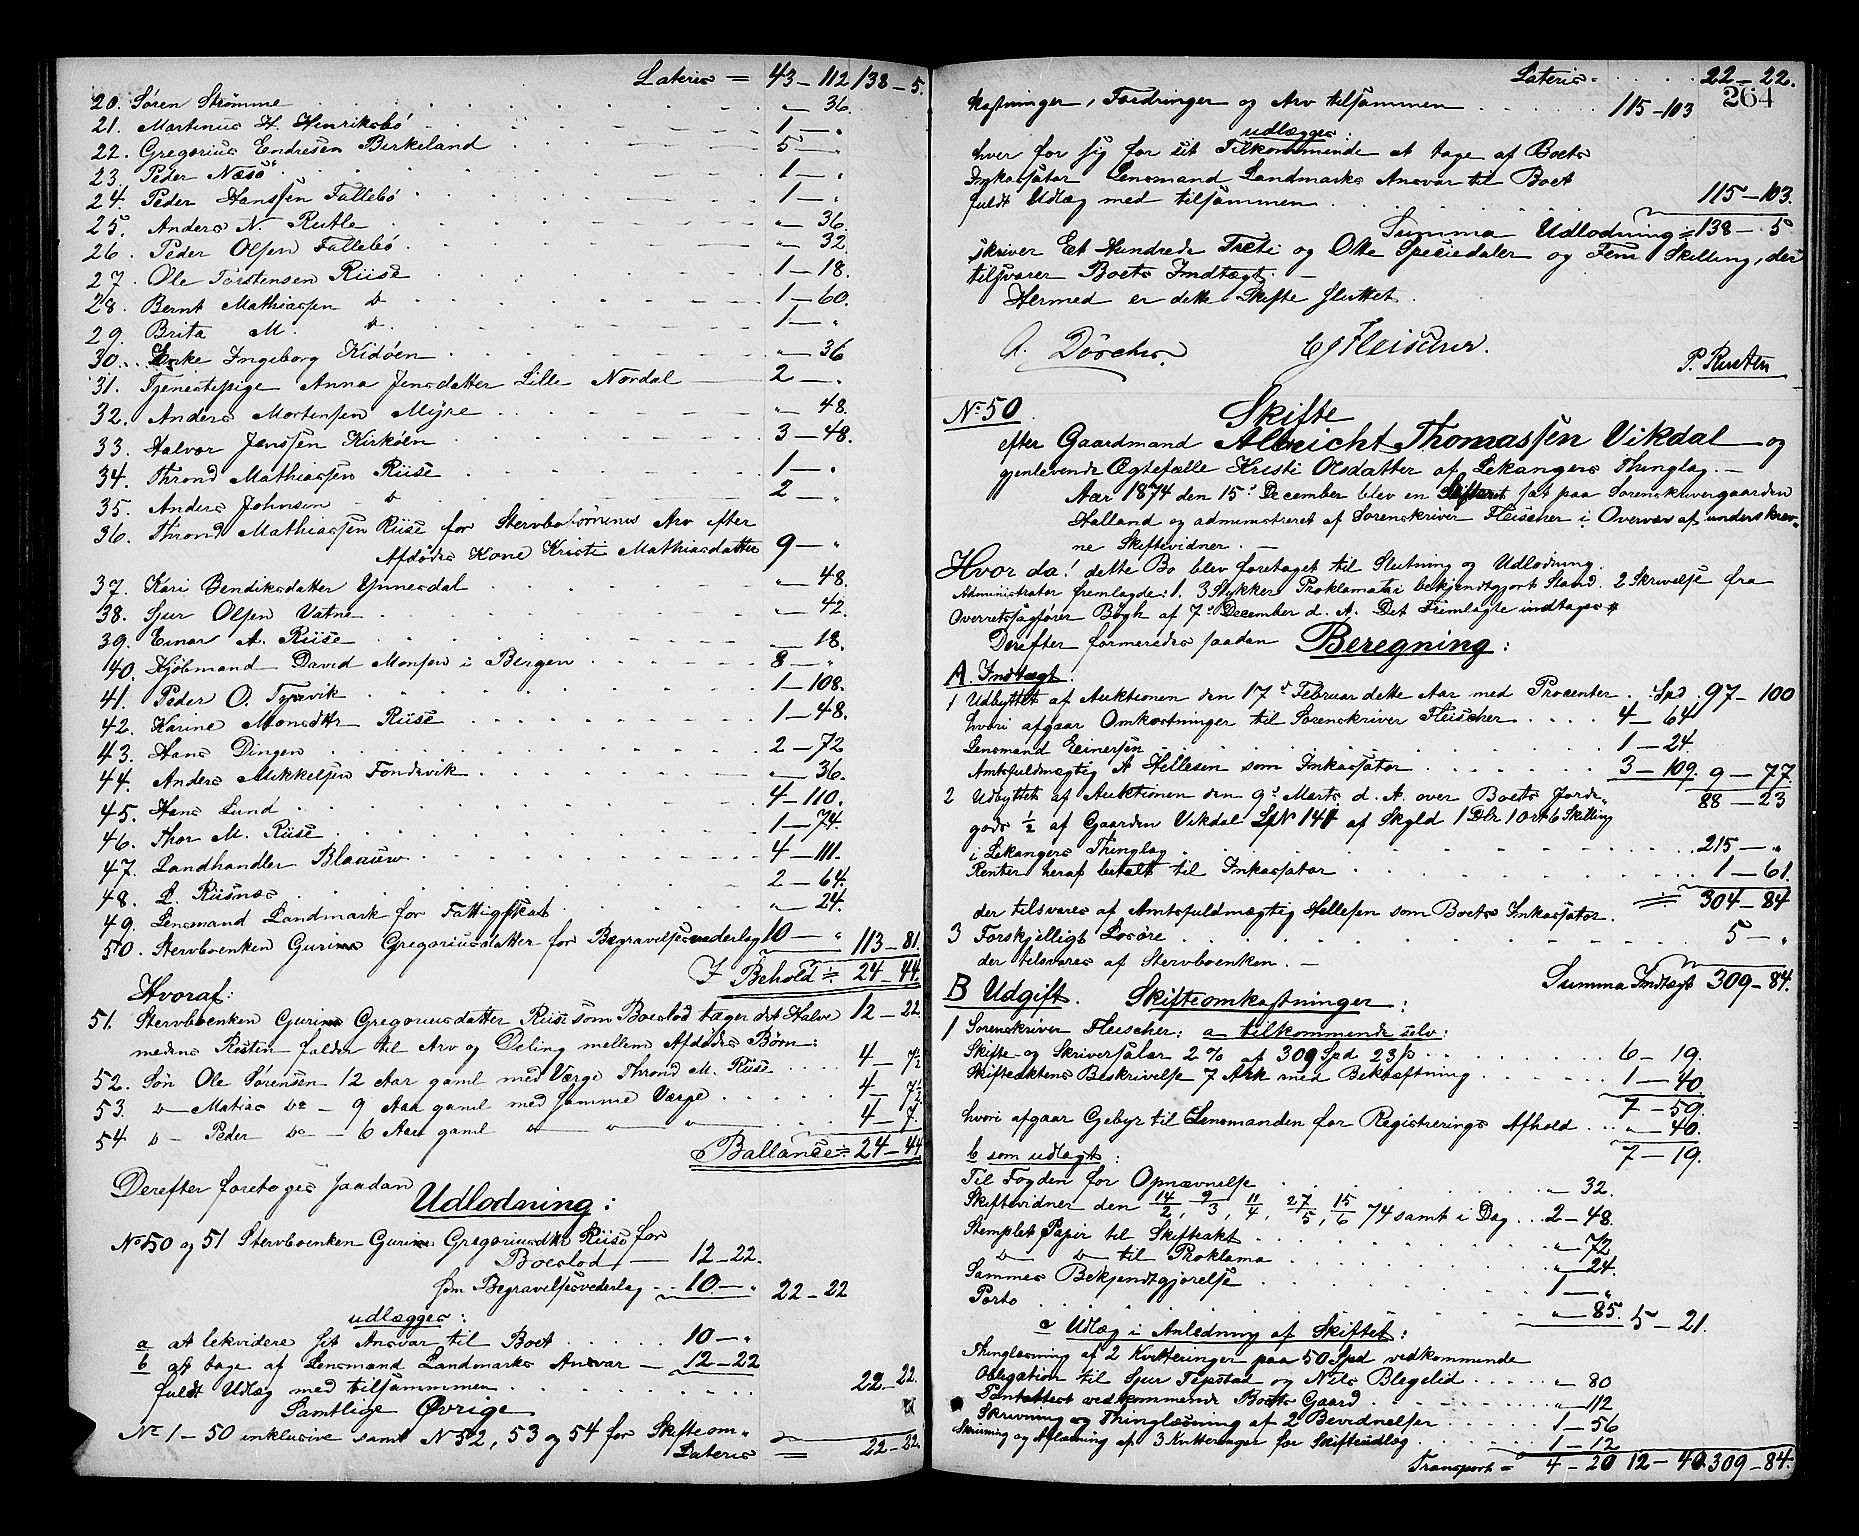 Lateris = 43 - 112 138 - 5.
20. Søren Strømme " 36.
21. Martinus H. Henriksbø 1 - "
22. Gregorius Endresen Birkeland 5 - "
23. Peder Næsø 1 - "
24. Peder Hanssen Fallebø 1 - "
25. Anders N. Rutle " 36.
26. Peder Olsen Fallebø " 32
27. Ole Torstensen Riise 1 - 18.
28. Bernt Mathiassen do 1 - 60.
29. Brita M. do 1 - "
30. Enke Ingeborg Kidøen " 36
31. Tjenestepige Anna Jensdatter Lille Nordal 2 - "
32. Anders Mortensen Myre " 48.
33. Halvor Jenssen Kirkøen 3 - 48.
34. Thrond Mathiassen Riise 1 - "
35. Anders Johnsen do 2 - "
36. Thrond Mathiassen Riise for Stervbobørnenes Arv efter
Afdødes Kone Kristi Mathiasdatter 9 - "
37. Kari Bendiksdatter Ynnesdal " 48.
38. Sjur Olsen Vatne " 42.
39. Einar A. Riise " 18.
40. Kjøbmand David Monsen i Bergen 8 - "
41. Peder O. Tynvik 1 - 108.
42. Karine Monsdttr Riise 1 - 48.
43. Hans Dingen 2 - 72
44. Anders Mikkelsen Fondevik " 36.
45. Hans Lund 4 - 110.
46. Thor M. Riise 1 - 74.
47. Landhandler Blaauw 4 - 111.
48. L. Riisnæs 2 - 64.
49. Lensmand Landmark for Fattigskat " 24.
50. Stervboenken Gurine Gregoriusdatter for Begravelsesvederlag 10 - " 113 - 81.
I Behold = 24 - 44.
Hvoraf:
51. Stervboenken Gurine Gregoriusdatter Riise som Boeslod tager det Halve 12 - 22.
medens Resten falder til Arv og Deling mellem Afdødes Børn:
52. Søn Ole Sørensen 12 Aar gaml med Værge Thrond M. Riise 4 - 7½
53. do Matias do - 9 Aar gaml med samme Værge 4 - 7½
54 do Peder do - 6 Aar gaml " " " 4 - 7.
Ballance = 24 - 44
Derefter foretoges saadan
Udlodning:
No 50 og 51 Stervboenken Gurine Gregoriusdtr Riise for
Boeslod 12 - 22.
som Begravelsesvederlag 10 - " 22 - 22
udlægges:
a at lekvidere sit Ansvar til Boet 10 - "
b at tage af Lensmand Landmarks Ansvar 12 - 22
fuldt Udlæg med tilsammen 22 - 22.
Samtlige Øvrige
No 1 - 50 inklusive samt No 52, 53 og 54 for Skifteom-
Lateris = 22 - 22.
Lateris = 22 - 22.
264
kostninger, Fordringer og Arv tilsammen 115 - 103
udlægges:
hver for sig for sit Tilkommende at tage af Boets
Inkassator Lensmand Landmarks Ansvar til Boet
fuldt Udlæg med tilsammen 115 - 103.
Summa Udlodning = 138 - 5
skriver Et Hundrede Treti og Otte Speciedaler og Fem Skilling, der
tilsvarer Boets Indtægt. -
Hermed er dette Skifte sluttet.
CGFleischer.
No 50. Skifte
efter Gaardmand Albricht Thomassen Vikdal og
gjenlevende Ægtefælle Kristi Olsdatter af Lekangers Thinglag. -
Aar 1874 den 15de December blev en Skifteret sat paa Sorenskrivergaarden
Halland og administreret af Sorenskriver Fleischer i Overvær af underskrev-
ne Skiftevidner. -
Hvor da! dette Bo blev foretaget til Slutning og Udlodning.
Administrator fremlagde: 1. 3 Stykker Proklamata i bekjendtgjort Stand. 2 Skrivelse fra
Overretssagfører Bøgh af 7de December d. A. Det Fremlagte indtages
Derefter formeredes saadan Beregning:
A. Indtægt.
1 Udbyttet af Auktionen den 17de Februar dette Aar med Procenter Spd 97 - 100
hvori afgaar Omkostninger til Sorenskriver Fleischer 4 - 64
Lensmand Einersen 1 - 24.
Amtsfuldmægtig A Hellesen som Inkassator 3 - 109. 9 - 77.
88 - 23
2 Udbyttet af Auktionen den 9de Marts d. A. over Boets Jorde-
gods ½ af Gaarden Vikdal LNo 141 af Skyld 1 Dlr 1 Ort 6 Skilling
i Lekangers Thinglag 215 - "
Renter heraf betalt til Inkassator 1 - 61.
304 - 84
der tilsvares af Amtsfuldmægtig Hellesen som Boets Inkassator.
3 Forskjelligt Løsøre 5 - "
der tilsvares af Stervboenken. -
Summa Indtægt 309 - 84.
B Udgift. Skifteomkostninger:
1 Sorenskriver Fleischer: a tilkommende selv:
Skifte og Skriversalær 2% af 309 Spd 23 ß 6 - 19.
Skifteaktens Beskrivelse 7 Ark med Bekræftning 1 - 40.
7 - 59.
hvori afgaar Gebyr til Lensmanden for Registrerings Afhold " 40.
7 - 19.
b som udlagt:
Til Fogden for Opnævnelse " 32.
Skiftevidner den 14/2, 9/3, 11/4, 27/5, 15/6 74 samt i Dag 2 - 48.
Stemplet Papir til Skifteakt " 72
do do til Proklama " 24.
Sammes Bekjendtgjørelse 1 - "
Porto " 85. 5 - 21.
c Udlæg i Anledning af Skiftet:
Thinglæsning af 2 Kvitteringer paa 50 Spd vedkommende
Obligation til Sjur Tepstad og Nils Blegelid " 80
Panteattest vedkommende Boets Gaard " 112
Skrivning og Thinglæsning af 2 Bevidnelser 1 - 56
Skrivning og Aflæsning af 3 Kvitteringer for Skifteudlæg 1 - 12
Transport = 4 - 20 12 - 40 309 - 84.